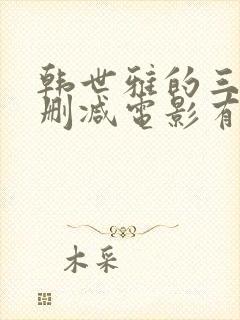 韩世雅的三
删减电影有
木采